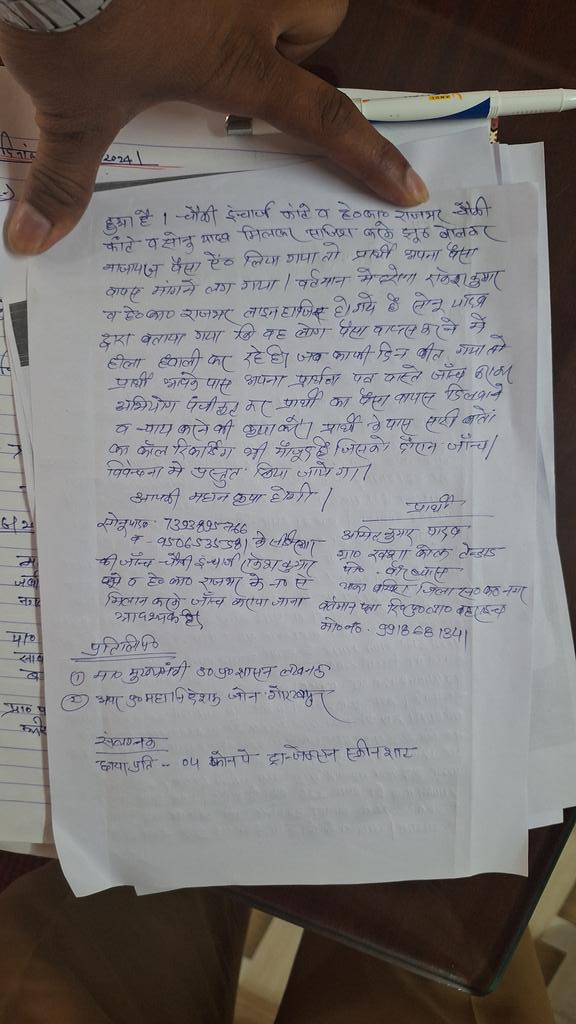 दिनां
2024
हुआ है। चौकी इंचार्ज कांटे व हे०का० राजभर चौकी
कांटे व सोनू यादव मिलकर साजिश करके झूठ बोलकर
नाजायज पैसा ऐंठ लिया गया तो प्रार्थी अपना पैसा
वापस मांगने लग गया। वर्तमान में राकेश कुमार
व हे०का० राजभर लाइन हाजिर हो गये हैं सोनू यादव
द्वारा बताया गया कि वह लोग पैसा वापस करने में
हीला हवाली कर रहे है। जब काफी दिन बीत गया तो
प्रार्थी आपके पास अपना प्रार्थना पत्र वास्ते जाँच कराकर
अभियोग पंजीकृत कर प्रार्थी का पैसा वापस दिलवाने
व न्याय करने की कृपा करें। प्रार्थी के पास सारी बातों
का कॉल रिकार्डिंग भी मौजूद है जिसको दौरान जाँच/
विवेचना मे प्रस्तुत किया जायेगा।
आपकी महान कृपा होगी।
सोनू या०- 7393895766
व - 9506535581 के
की जाँच चौकी इंचार्ज राकेश कुमार
कांटे व हे०का० राजभर के न० से
मिलान करके जाँच कराया जाना
आवश्यक है,
प्रार्थी
अमित कुमार यादव
ग्रा०
पो०
थाना बखिरा जिला सन्त क० नगर
वर्तमान पता
मो०न०. 9918681341
प्रतिलिपि
① मा० मुख्यमंत्री उ०प्र० शासन लखनऊ
② अपर पु० महानिदेशक जोन गोरखपुर
संलग्नक
छायाप्रति - 04 फोन पे ट्रान्जेक्सन स्क्रीनशाट